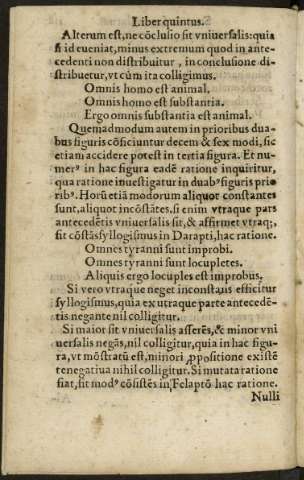 Liber quintus.
Alterum est, ne cōclusio sit vniuersalis: quia
si id eueniat, minus extremum quod in ante-
cedenti non distribuitur, in conclusione di-
stribuetur, vt cùm ita colligimus.
Omnis homo est animal.
Omnis homo est substantia.
Ergo omnis substantia est animal.
Quemadmodum autem in prioribus dua-
bus figuris cōficiuntur decem & sex modi, sic
etiam accidere potest in tertia figura. Et nu-
merꝰ in hac figura eadē ratione inquiritur,
qua ratione inuestigatur in duabꝰ figuris prio
ribꝰ. Horū etiā modorum aliquot constantes
sunt, aliquot incōstātes. si enim vtraque pars
antecedētis vniuersalis sit, & affirmet vtraq;,
sit cōstās syllogismus in Darapti, hac ratione.
Omnes tyranni sunt improbi.
Omnes tyranni sunt locupletes.
Aliquis ergo locuples est improbus.
Si vero vtraque neget inconstans efficitur
syllogismus, quia ex vtraque parte antecedē-
tis negante nil colligitur.
Si maior sit vniuersalis asserēs, & minor vni
uersalis negās, nil colligitur, quia in hac figu-
ra, vt mōstratū est, minori ꝓpositione existē
te negatiua nihil colligitur. Si mutata ratione
fiat, fit modꝰ cōsistēs in Felaptō hac ratione.
Nulli